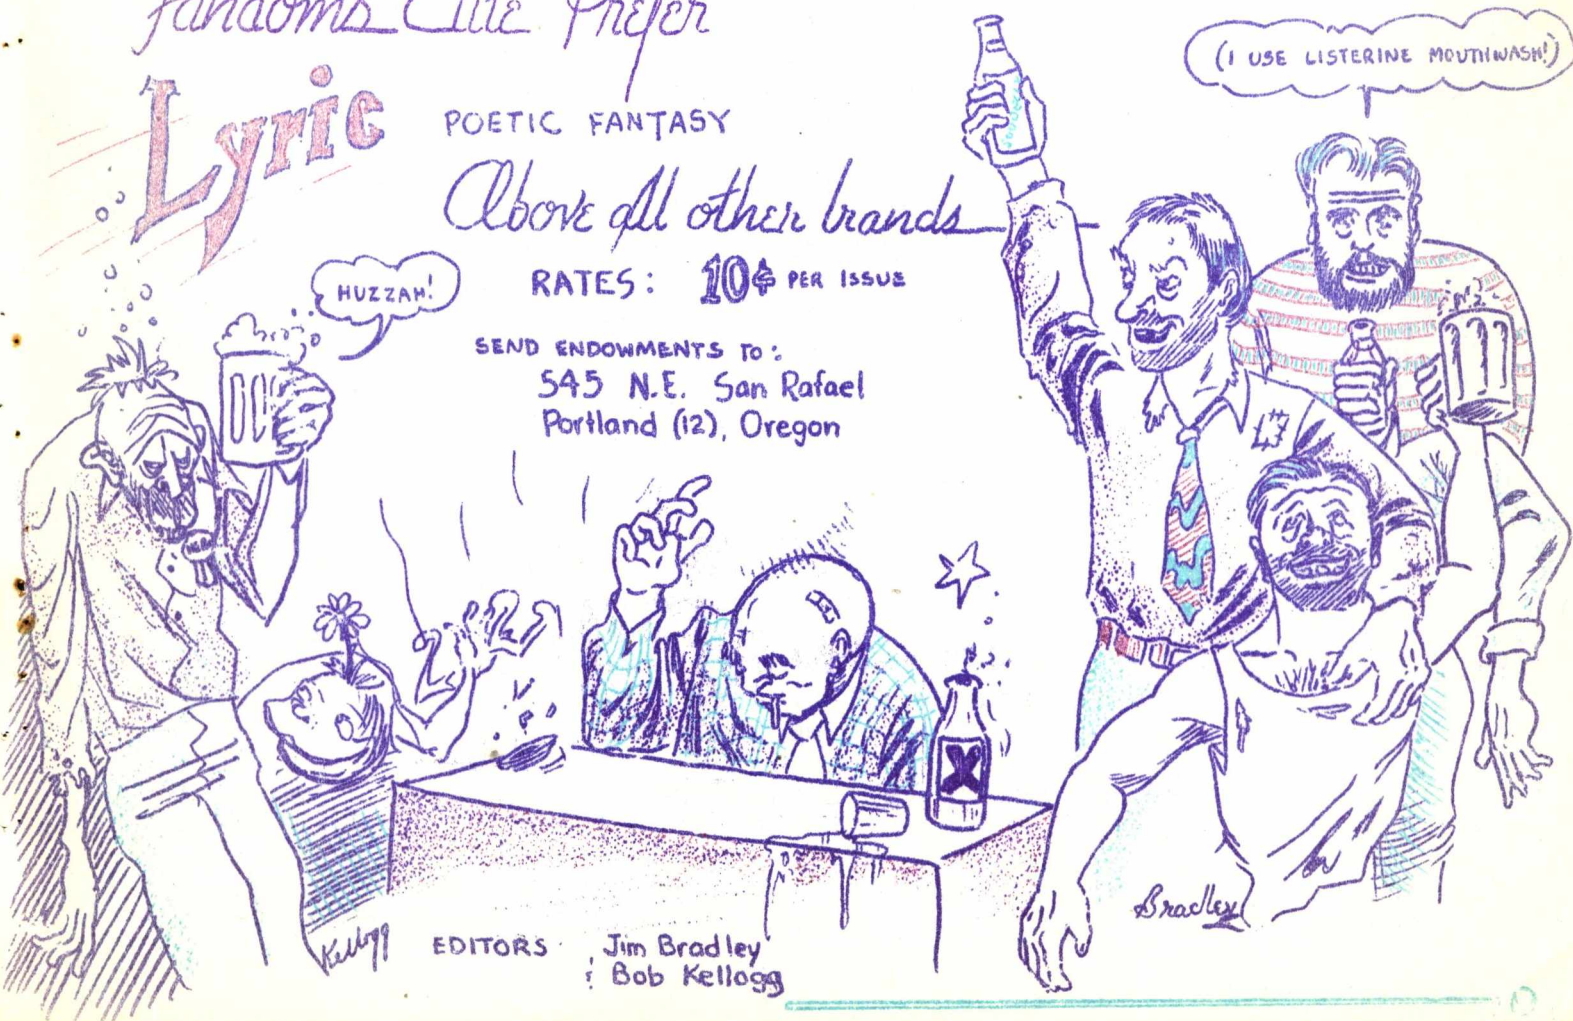 Fandoms Elite Prefer
Lyric
POETIC FANTASY
Above all other brands
RATES: 10¢ PER ISSUE
SEND ENDOWMENTS TO:
545 N.E. San Rafael
Portland (12), Oregon
HUZZAH!
(I USE LISTERINE MOUTHWASH!)
X
Kellogg
Bradley
EDITORS Jim Bradley
& Bob Kellogg